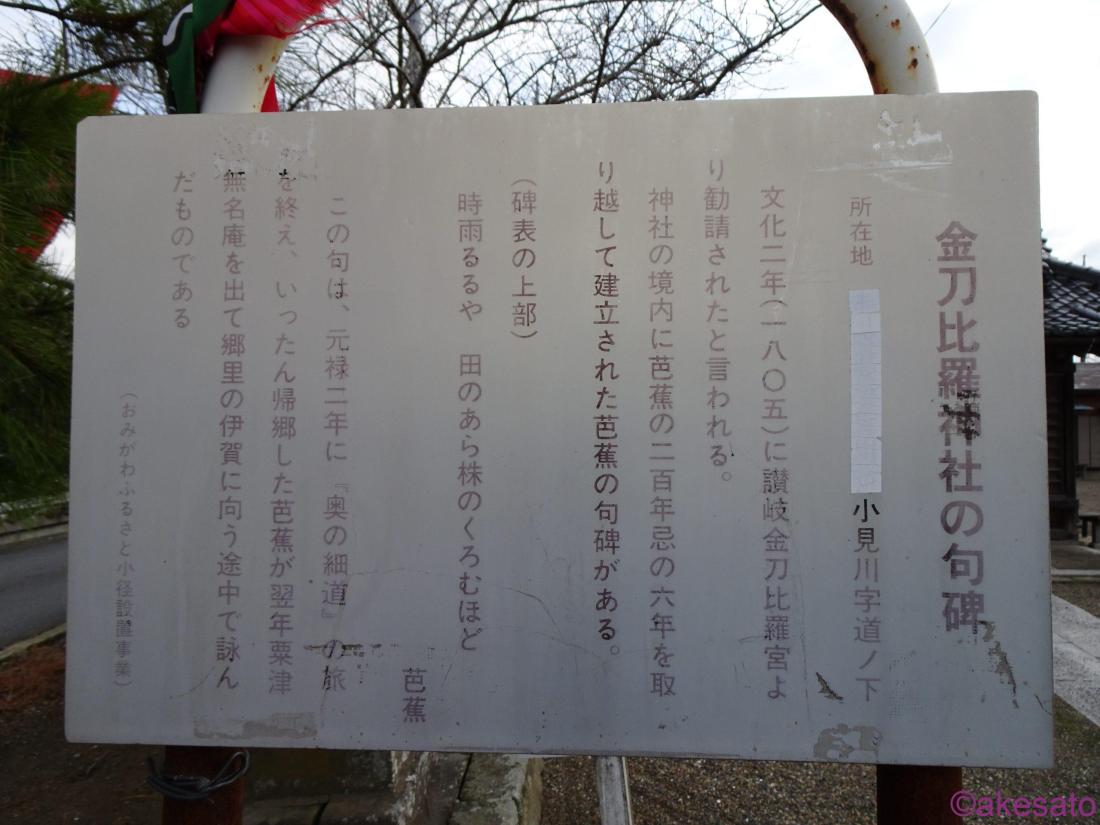 金刀比羅神社の句碑
所在地 小見川字道ノ下
文化二年(一八〇五)に讃岐金刀比羅宮よ
り勧請されたと言われる。
神社の境内に芭蕉の二百年忌の六年を取
り越して建立された芭蕉の句碑がある。
(碑表の上部)
時雨るるや 田のあら株のくろむほど
芭蕉
この句は、元禄二年に『奥の細道』の旅
を終え、いったん帰郷した芭蕉が翌年粟津
無名庵を出て郷里の伊賀に向う途中で詠ん
だものである
(おみがわふるさと小径設置事業)
©akesato